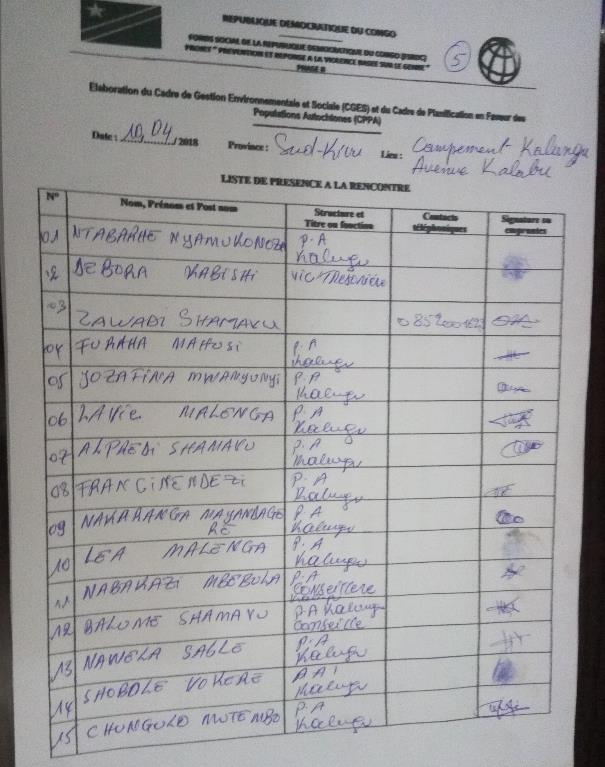 REPUBLIQUE DEMOCRATIQUE DU CONGO
FONDS SOCIAL DE LA REPUBLIQUE DEMOCRATIQUE DU CONGO (FSRDC)
PROJET " PREVENTION ET REPONSE A LA VIOLENCE BASEE SUR LE GENRE "
PHASE II
5
Elaboration du Cadre de Gestion Environnementale et Sociale (CGES) et du Cadre de Planification en Faveur des
Populations Autochtones (CPPA)
Date : 10/04/2018 Province : Sud-Kivu Lieu : Campement Kalungu
Avenue Kalobu
LISTE DE PRESENCE A LA RENCONTRE
N° Nom, Prénom et Post nom Structure et Titre ou fonction Contacts téléphoniques Signature ou empruntes
01 NTABARHE NYAMUKONOZA P.A Kalugu
02 DEBORA KABISHI Vic Thesoriére
03 ZAWADI SHAMAVU
04 FURAHA MAHUSI P.A Kalugu
05 JOZAFINA MWANYUNYI P.A Kalugu
06 LAVie MALENGA P.A Kalugu
07 ALPHEDI SHAMAVU P.A Kalugu
08 FRANCINE NDEZI P.A Kalugu
09 NAKARANGA MAYANDAGE RE P.A Kalugu
10 LEA MALENGA P.A Kalugu
11 NABAKAZI MBEBULA P.A Conseillere
12 BALUME SHAMAVU P.A Kalugu Conseille
13 NAWELA SABLE P.A Kalugu
14 SHOBOLE VOKERE Kalugu
15 CHUNGULO MUTEMBO P.A Kalugu